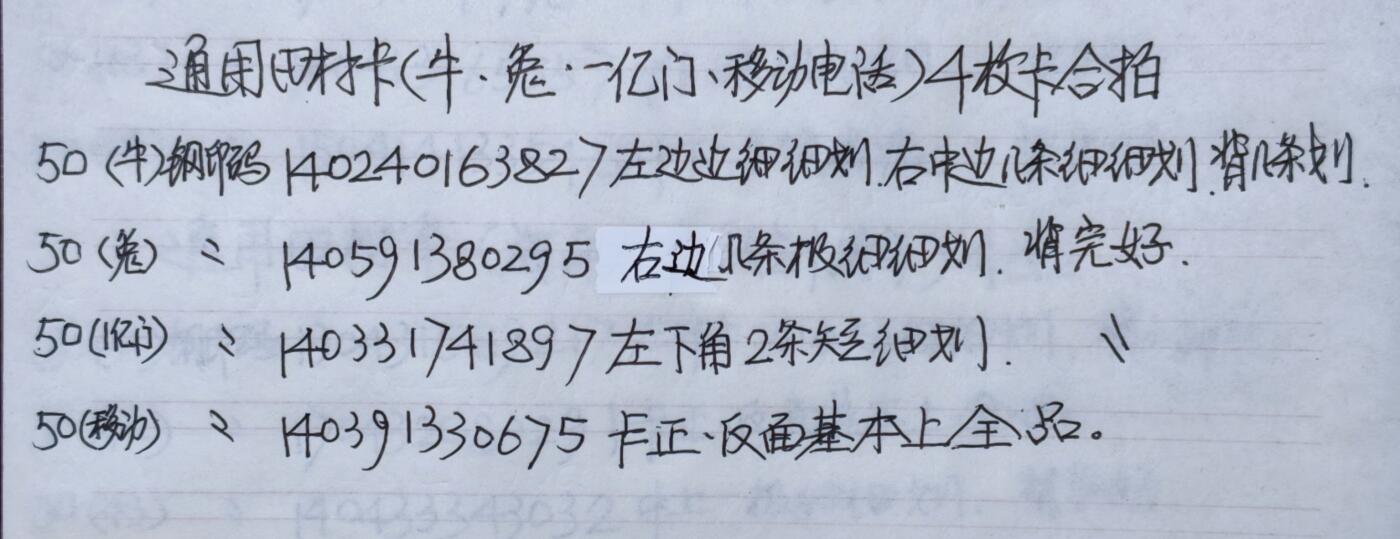 通用田村卡(牛、兔、一亿门、移动电话)4枚卡合拍
50(牛)钢印码 140240163827左边边细细划.右中边几条细细划.背几条划.
50(兔) 〃 140591380295 右边几条极细细划. 背完好.
50(1亿门) 〃 140331741897左下角2条短细划. 〃
50(移动) 〃 140391330675 卡正、反面基本上全品。